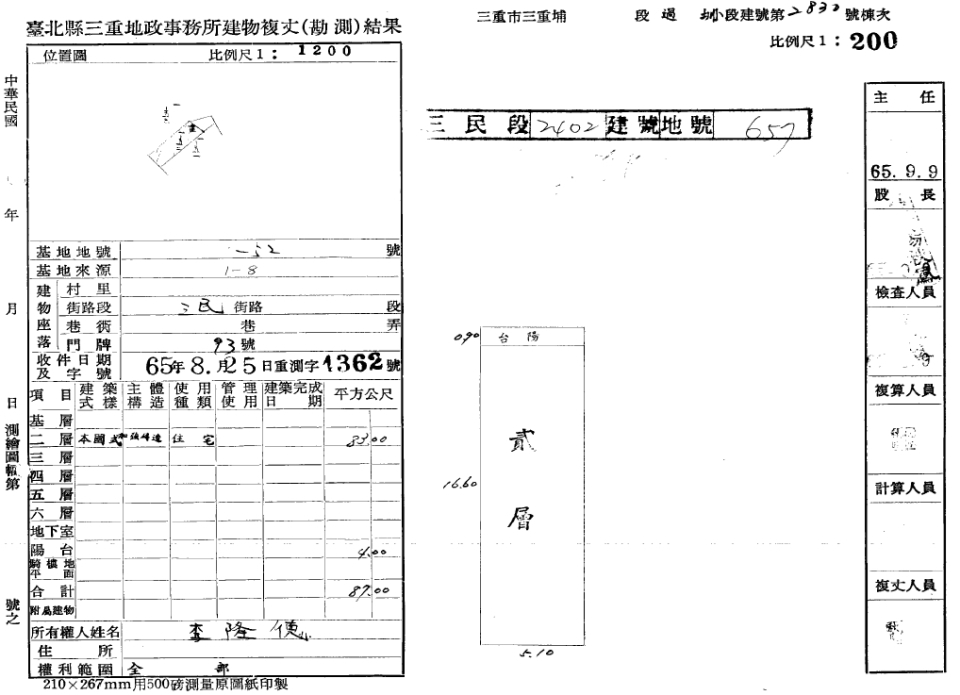 臺北縣三重地政事務所建物複丈(勘測)結果
三重市三重埔 段 過 圳小段建號第2832號棟次
比例尺1：200
位置圖 比例尺1：1200
中華民國 年 月 日測繪圖幅第 號之
三民段 2402 建號 地號 657
基地地號 號
基地來源 1-8
建物座落
村里
街路段 三民 街路 段
巷衖 巷 弄
門牌 93號
收件日期及字號 65年8.月25日重測字1362號
項目 建築式樣 主體構造 使用種類 管理使用 建築完成日期 平方公尺
基層
二層 本國式 加強磚造 住宅 83.00
三層
四層
五層
六層
地下室
陽台 4.00
騎樓地平面
合計 87.00
附屬建物
所有權人姓名 李隆德
住所
權利範圍 全部
210×267mm用500磅測量原圖紙印製
0.90 台陽
貳層
16.60
5.10
主任
65.9.9
股長
檢查人員
複算人員
計算人員
複丈人員